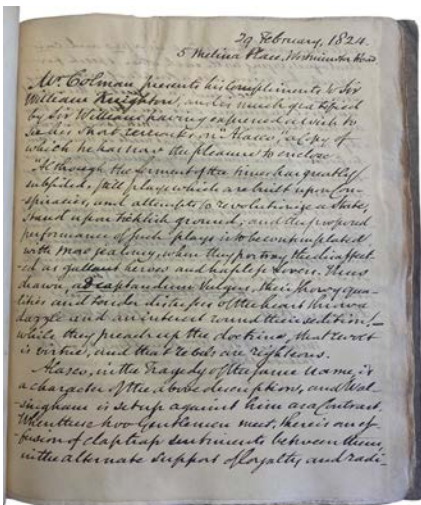 29 February, 1824.
5 Melina Place, Westminster Road
Mr Colman presents his Compliments to Sir
William Knighton, and is much gratified
by Sir William's having expressed a wish to
see his short remarks on "Alasco," a copy of
which he has now the pleasure to enclose
"Although the ferment of the times has greatly
subsided, still plays which are built upon Con-
spiracies, and attempts to revolutionize a state,
stand upon ticklish ground; and the proposed
performance of such plays is to be contemplated
with more jealousy, when they portray the disaffect-
ed as gallant heroes and hapless lovers. Thus
drawn, ad captandum vulgus, their showy qua-
lities and tender distresses of the heart throw a
dazzle and an interest round their sedition!—
while they preach up the doctrine, that revolt
is virtue, and that rebels are righteous.
Alasco, in the Tragedy of the same name, is
a character of the above description, and Wal-
singham is set up against him as a Contrast.
When these two Gentlemen meet, there is an ef-
fusion of claptrap sentiments between them,
in the alternate support of loyalty and radi-